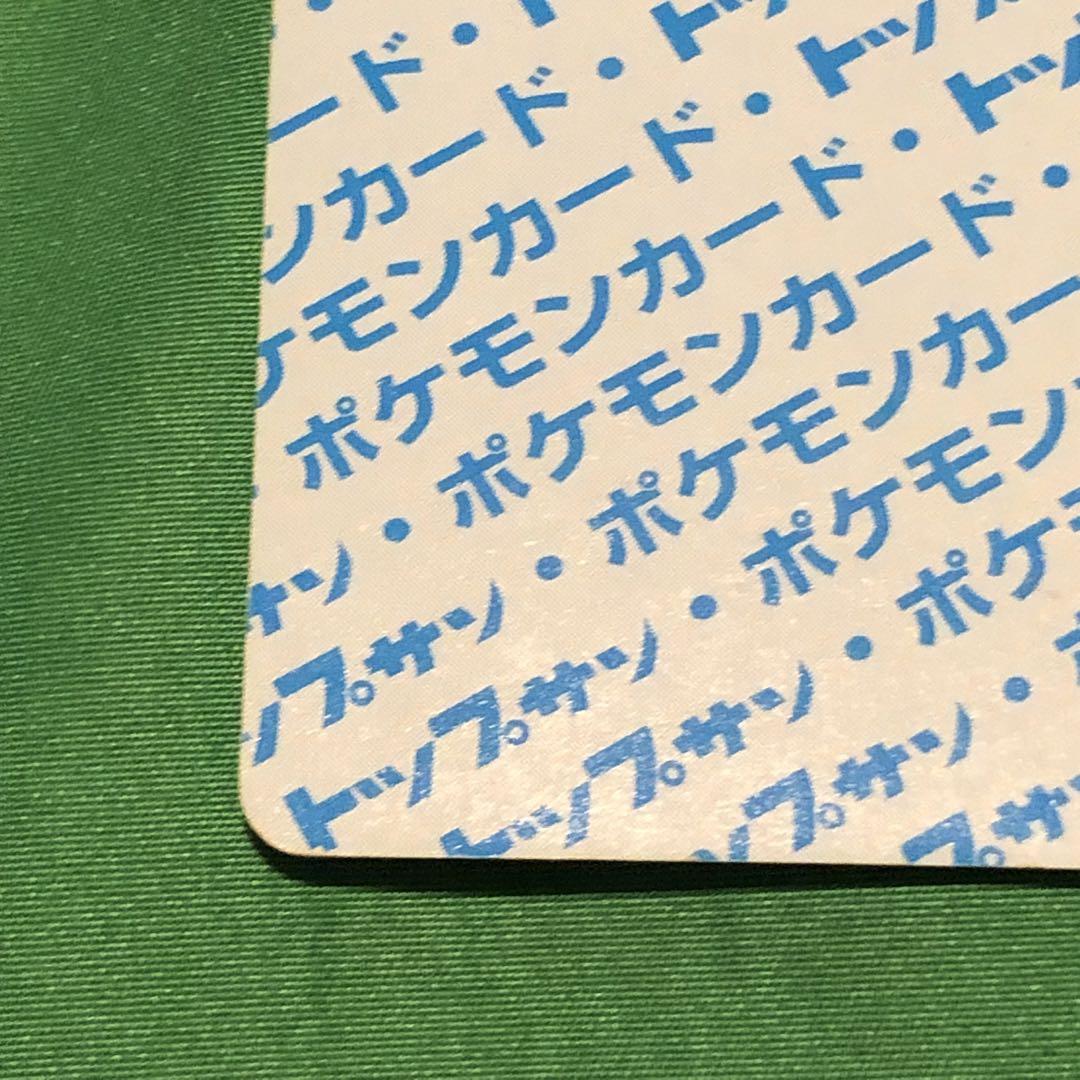 ード・ト
ンカード・トッ
ケモンカード・トップ
ポケモンカード・トッ
サン・ポケモンカード・
ップサン・ポケモンカー
トップサン・ポケモン
トップサン・ポケモ
ップサン・
プサ